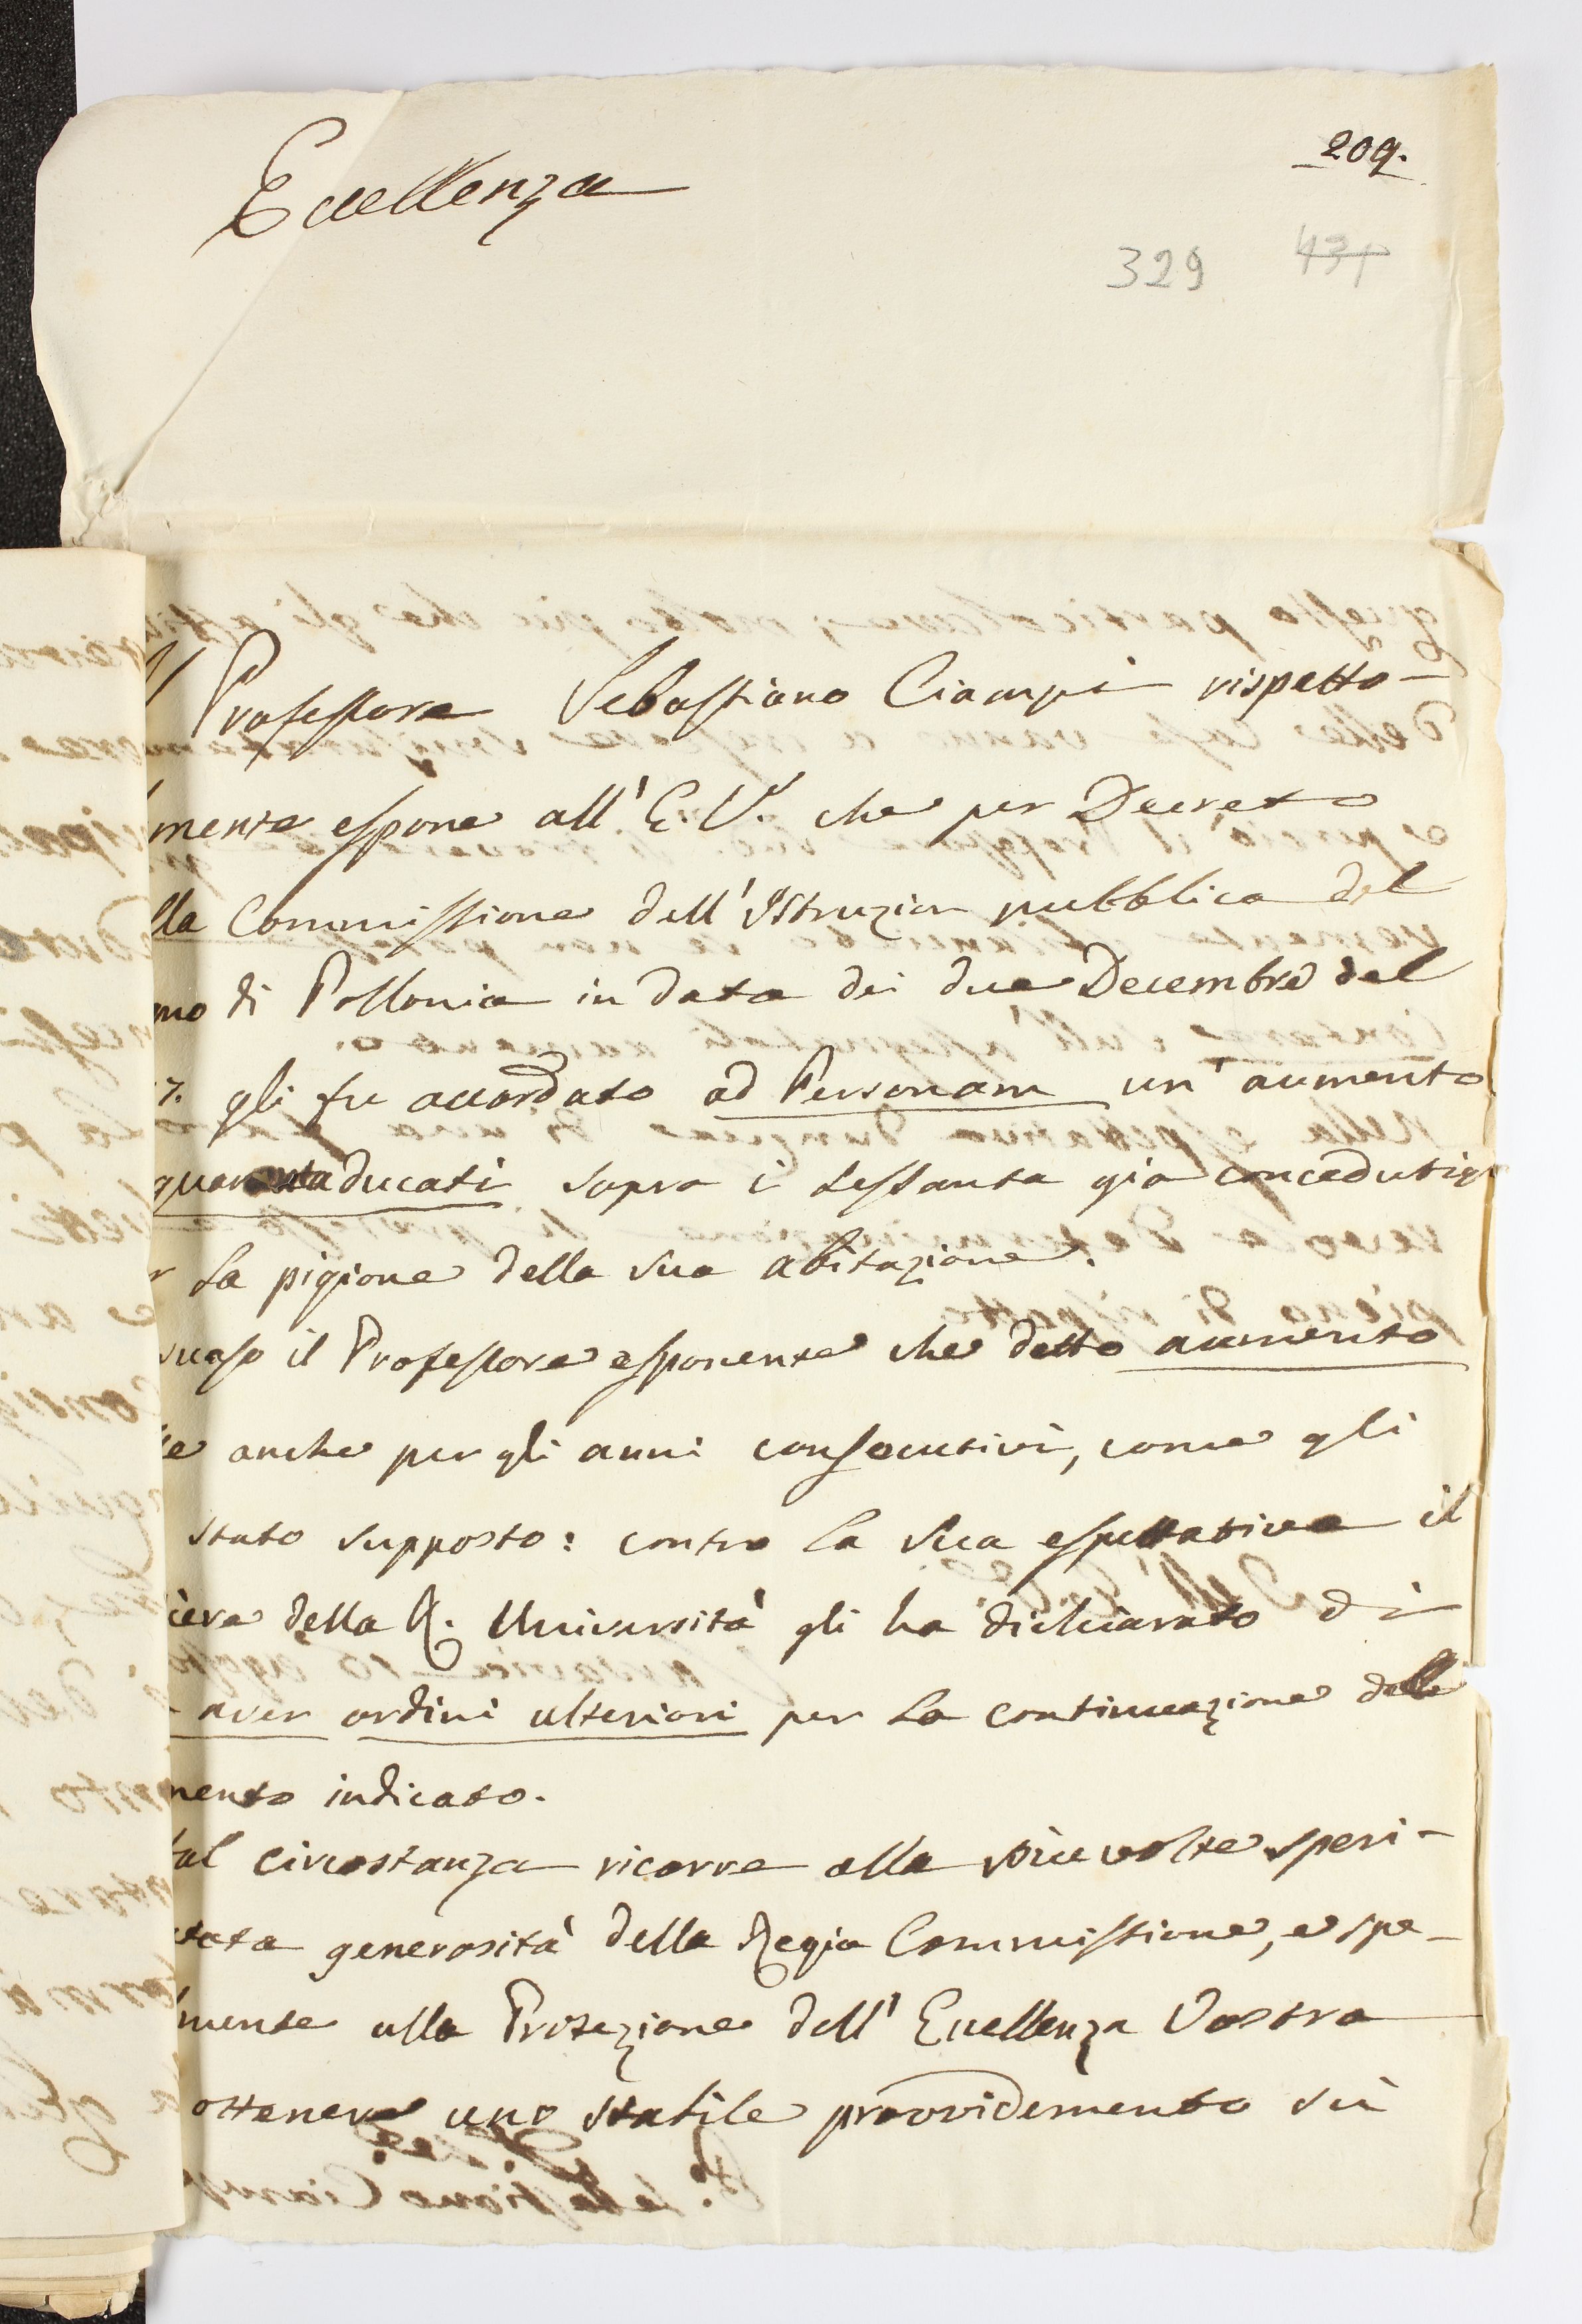 209.
Eccellenza
329 431
Il Professore Sebastiano Ciampi rispetto-
mente espone all' E. V. che per Decreto
lla Commissione dell' Istruzion pubblica del
gno di Pollonia in data dei due Decembre del
7. gli fu accordato ad Personam un' aumento
quaranta ducati sopra i sessanta già concedutigli
r la pigione della sua abitazione.
suaso il Professore esponente che detto aumento
se anche per gli anni consecutivi, come gli
stato supposto: contro la sua espettativa il
iere della R. Università gli ha dichiarato di
aver ordini ulteriori per la continuazione dell
mento indicato.
tal circostanza ricorre alla più volte speri-
tata generosità della Regia Commissione, e spe-
lmente alla Protezione dell' Eccellenza Vostra
ottenere uno stabile provvidemento su